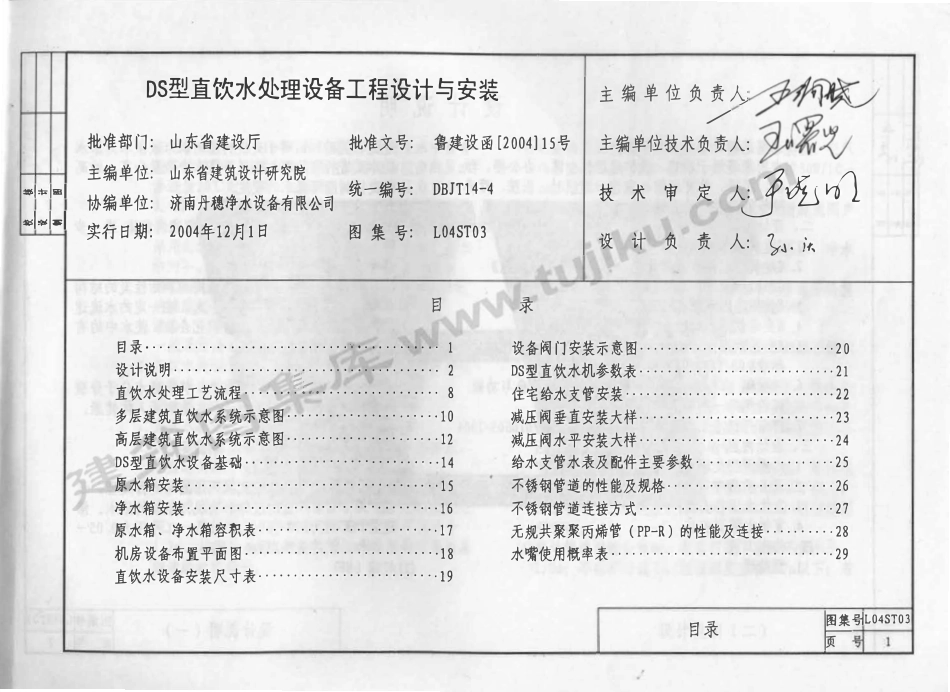 DS型直饮水处理设备工程设计与安装
批准部门: 山东省建设厅 批准文号: 鲁建设函[2004]15号
主编单位: 山东省建筑设计研究院 统一编号: DBJT14-4
协编单位: 济南丹穗净水设备有限公司
实行日期: 2004年12月1日 图集号: L04ST03
主编单位负责人:
主编单位技术负责人:
技术审定人:
设计负责人:
目 录
目录 1
设计说明 2
直饮水处理工艺流程 8
多层建筑直饮水系统示意图 10
高层建筑直饮水系统示意图 12
DS型直饮水设备基础 14
原水箱安装 15
净水箱安装 16
原水箱、净水箱容积表 17
机房设备布置平面图 18
直饮水设备安装尺寸表 19
设备阀门安装示意图 20
DS型直饮水机参数表 21
住宅给水支管安装 22
减压阀垂直安装大样 23
减压阀水平安装大样 24
给水支管水表及配件主要参数 25
不锈钢管道的性能及规格 26
不锈钢管道连接方式 27
无规共聚聚丙烯管(PP-R)的性能及连接 28
水嘴使用概率表 29
建筑图集库 www.tujiku.com
目录
图集号 L04ST03
页 号 1